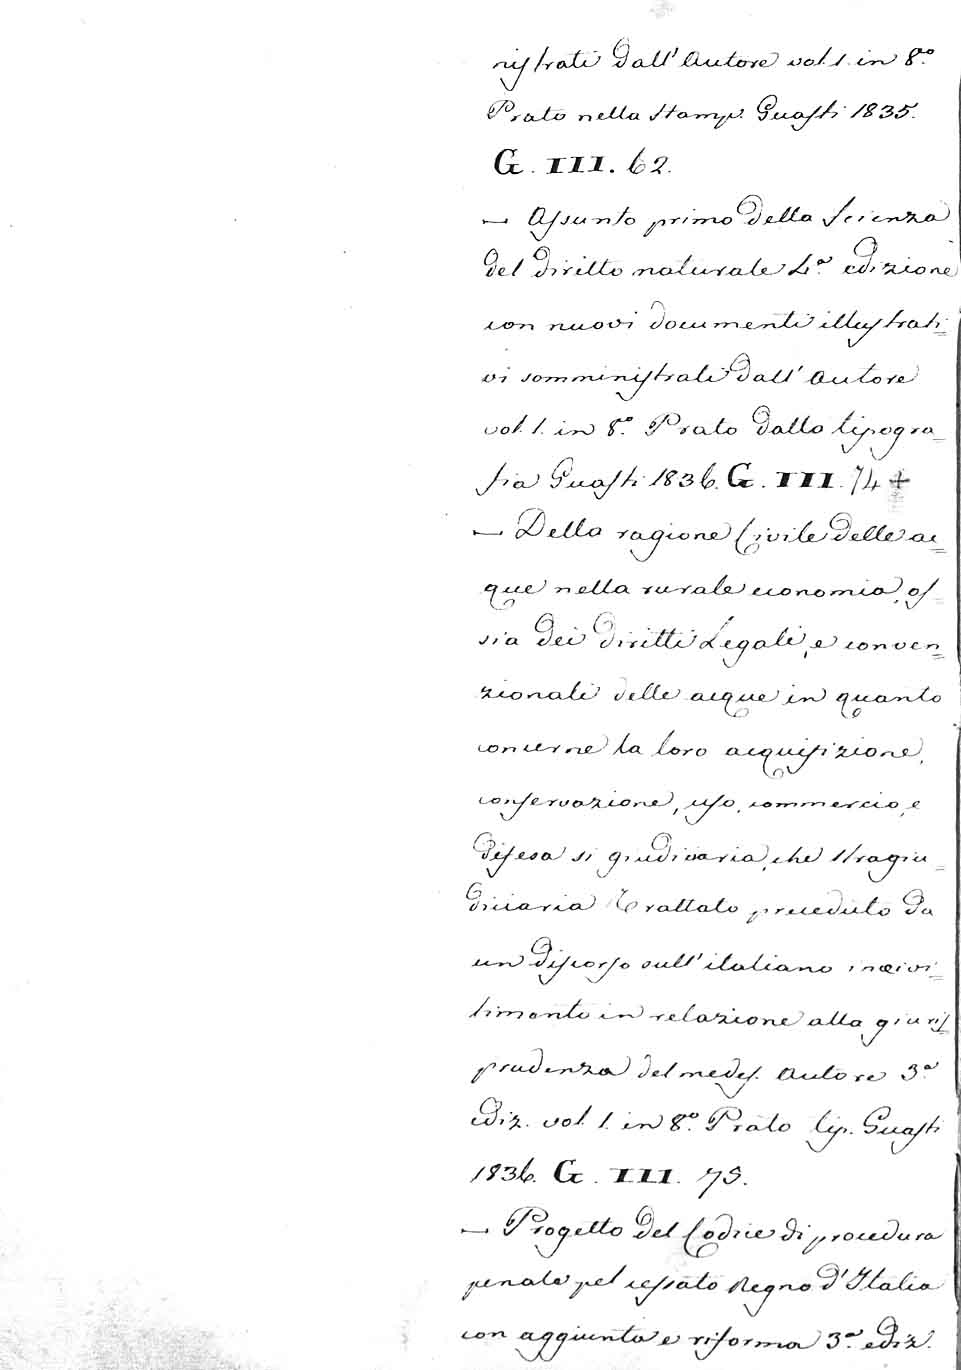 nistrati dall' Autore vol. 1. in 8.º
Prato nella Stamp. Guasti 1835.
G. III. 62.
— Assunto primo della Scienza
del diritto naturale 4.ª edizione
con nuovi documenti illustrati=
vi somministrati dall' Autore
vol. 1. in 8.º Prato dalla tipogra=
fia Guasti 1836. G. III. 74 +
— Della ragione Civile delle ac=
que nella rurale economia, os=
sia dei diritti Legali, e conven=
zionali delle acque in quanto
concerne la loro acquisizione,
conservazione, uso, commercio, e
difesa si giudiciaria, che stragiu=
diciaria Trattato preceduto da
un discorso sull' italiano incivi=
limento in relazione alla giuris=
prudenza del medes. Autore 3.ª
ediz. vol. 1. in 8.º Prato tip. Guasti
1836. G. III. 75.
— Progetto del Codice di procedura
penale pel cessato Regno d' Italia
con aggiunta e riforma 3.ª ediz.